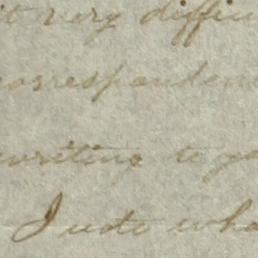 it very difficu
correspondenc
writing to yo
I note wha